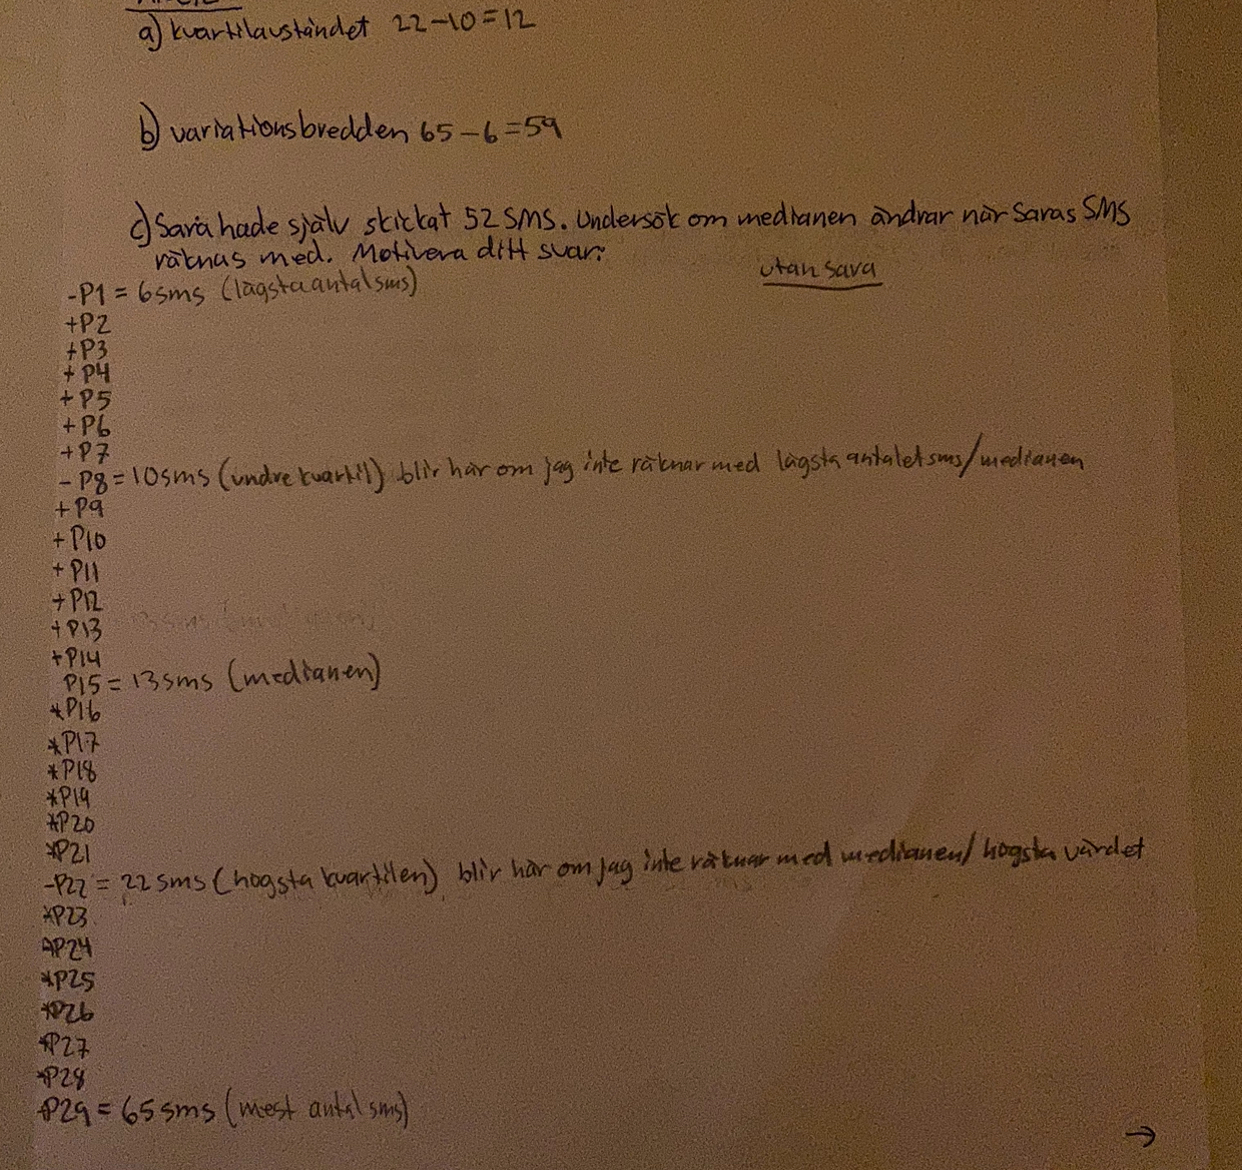 a) kvartilavståndet 22-10=12
b) variationsbredden 65-6=59
c) Sara hade själv skickat 52 SMS. Undersök om medianen ändrar när Saras SMS
räknas med. Motivera ditt svar:
utan sara
-P1 = 6sms (lägsta antal sms)
+P2
+P3
+P4
+P5
+P6
+P7
-P8=10sms (undre kvartil) blir här om jag inte räknar med lägsta antalet sms/medianen
+P9
+P10
+P11
+P12
+P13
+P14
P15=13sms (medianen)
*P16
*P17
*P18
*P19
*P20
*P21
-P22 = 22sms (högsta kvartilen) blir här om jag inte räknar med medianen/högsta värdet
*P23
*P24
*P25
*P26
*P27
*P28
-P29 = 65sms (mest antal sms)
→